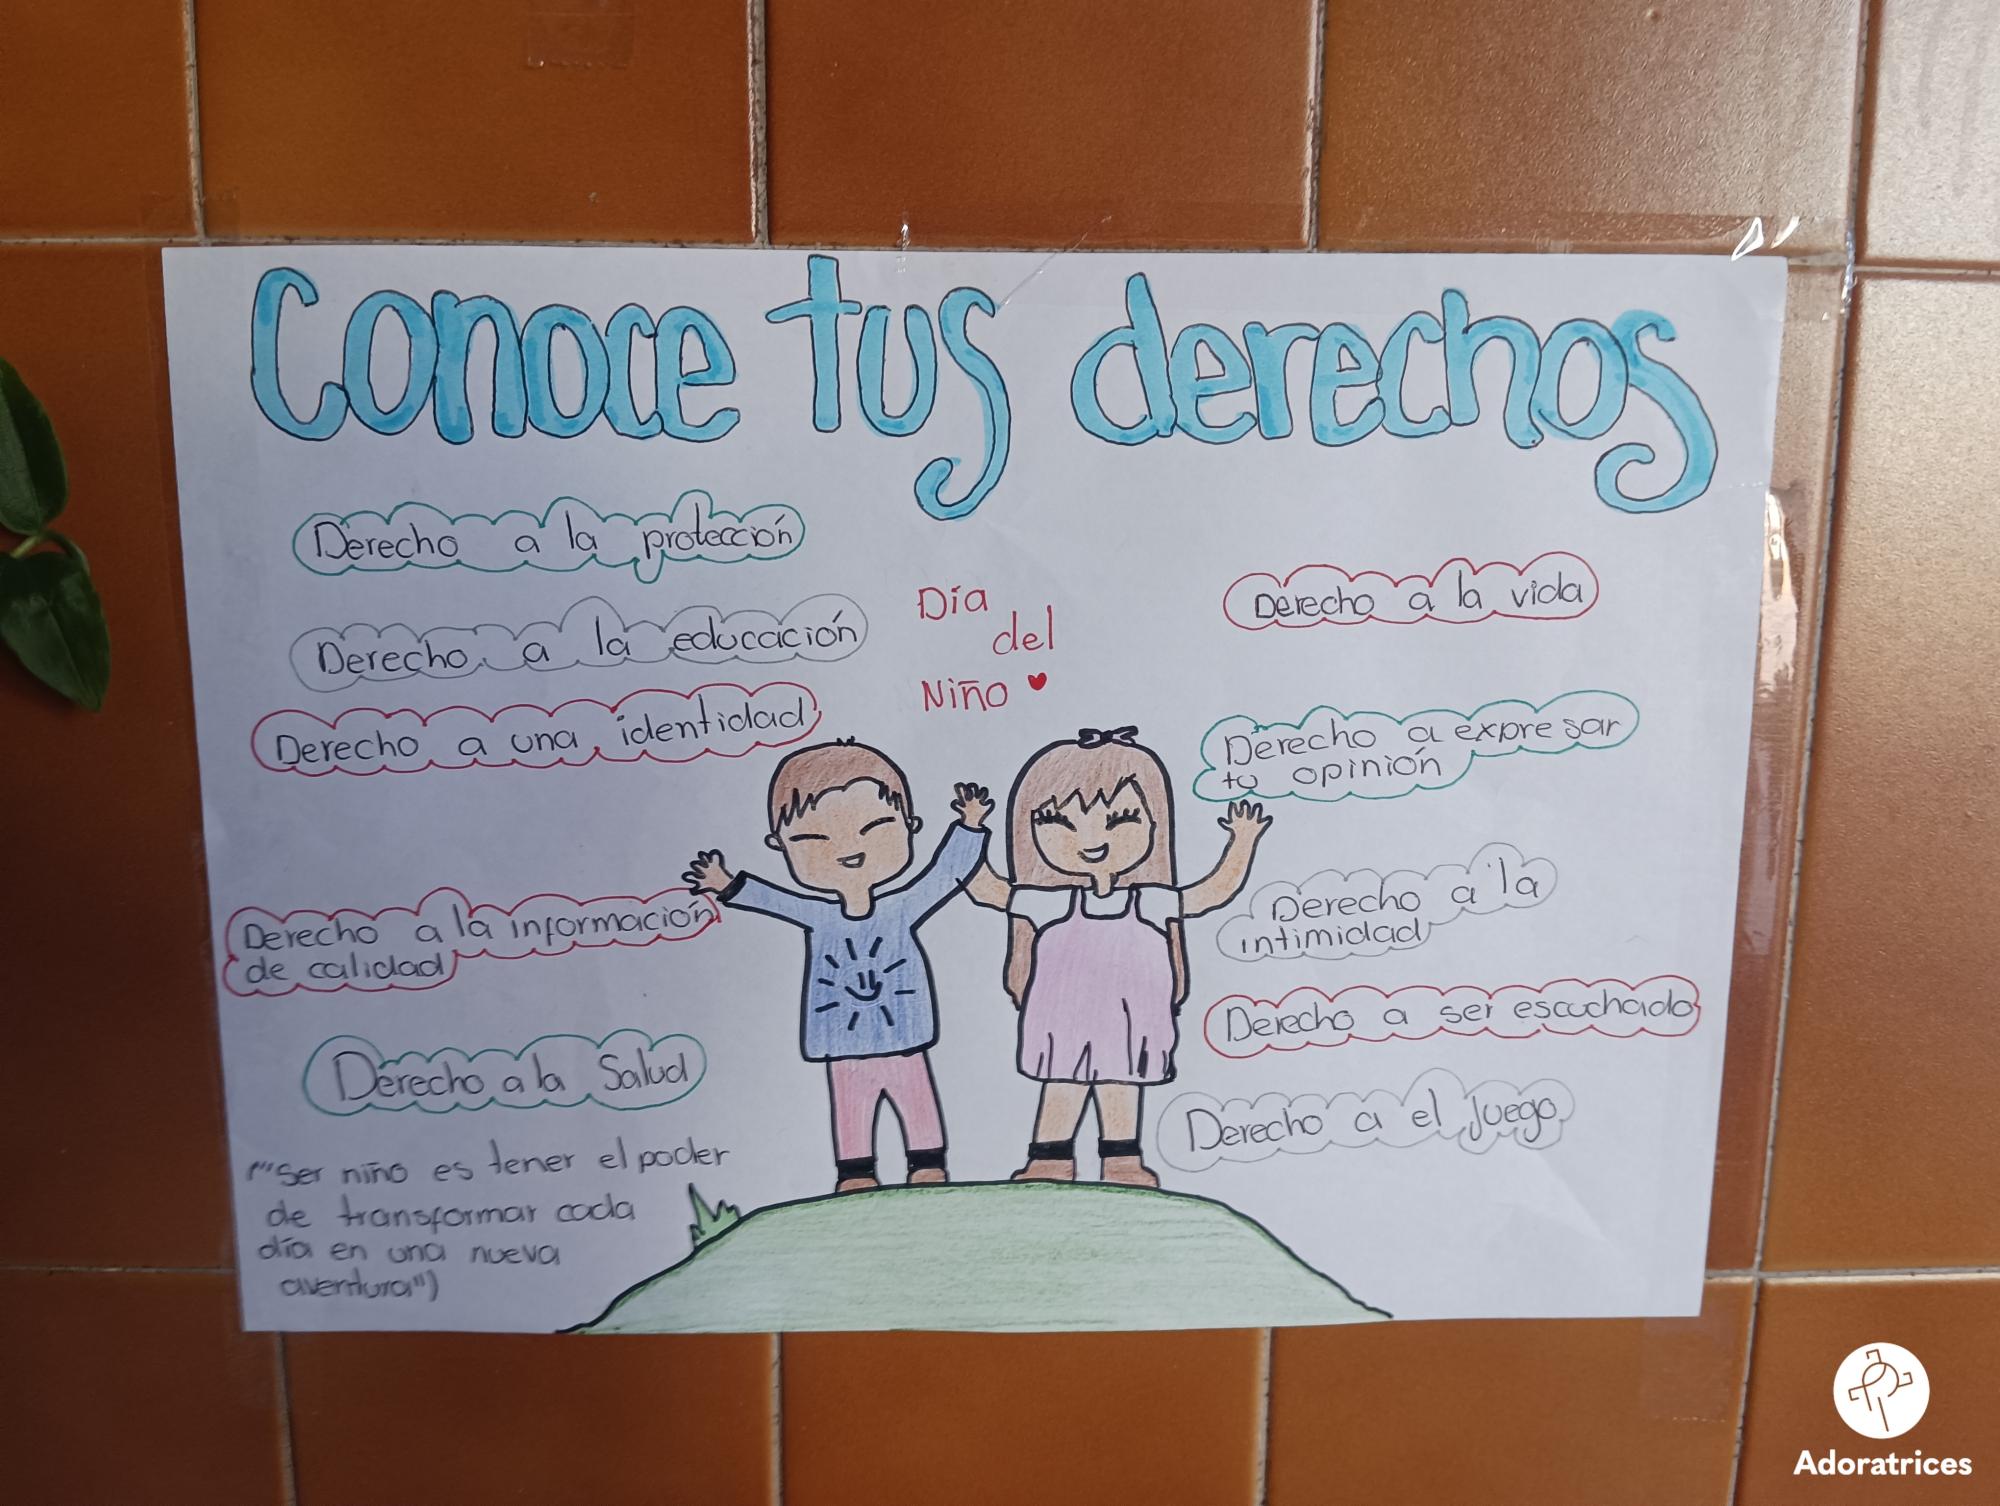 Conoce tus derechos
Derecho a la protección
Derecho a la educación
Derecho a una identidad
Derecho a la información
de calidad
Derecho a la Salud
("Ser niño es tener el poder
de transformar cada
día en una nueva
aventura")
Día
del
Niño
Derecho a la vida
Derecho a expresar
tu opinión
Derecho a la
intimidad
Derecho a ser escuchado
Derecho a el juego
Adoratrices